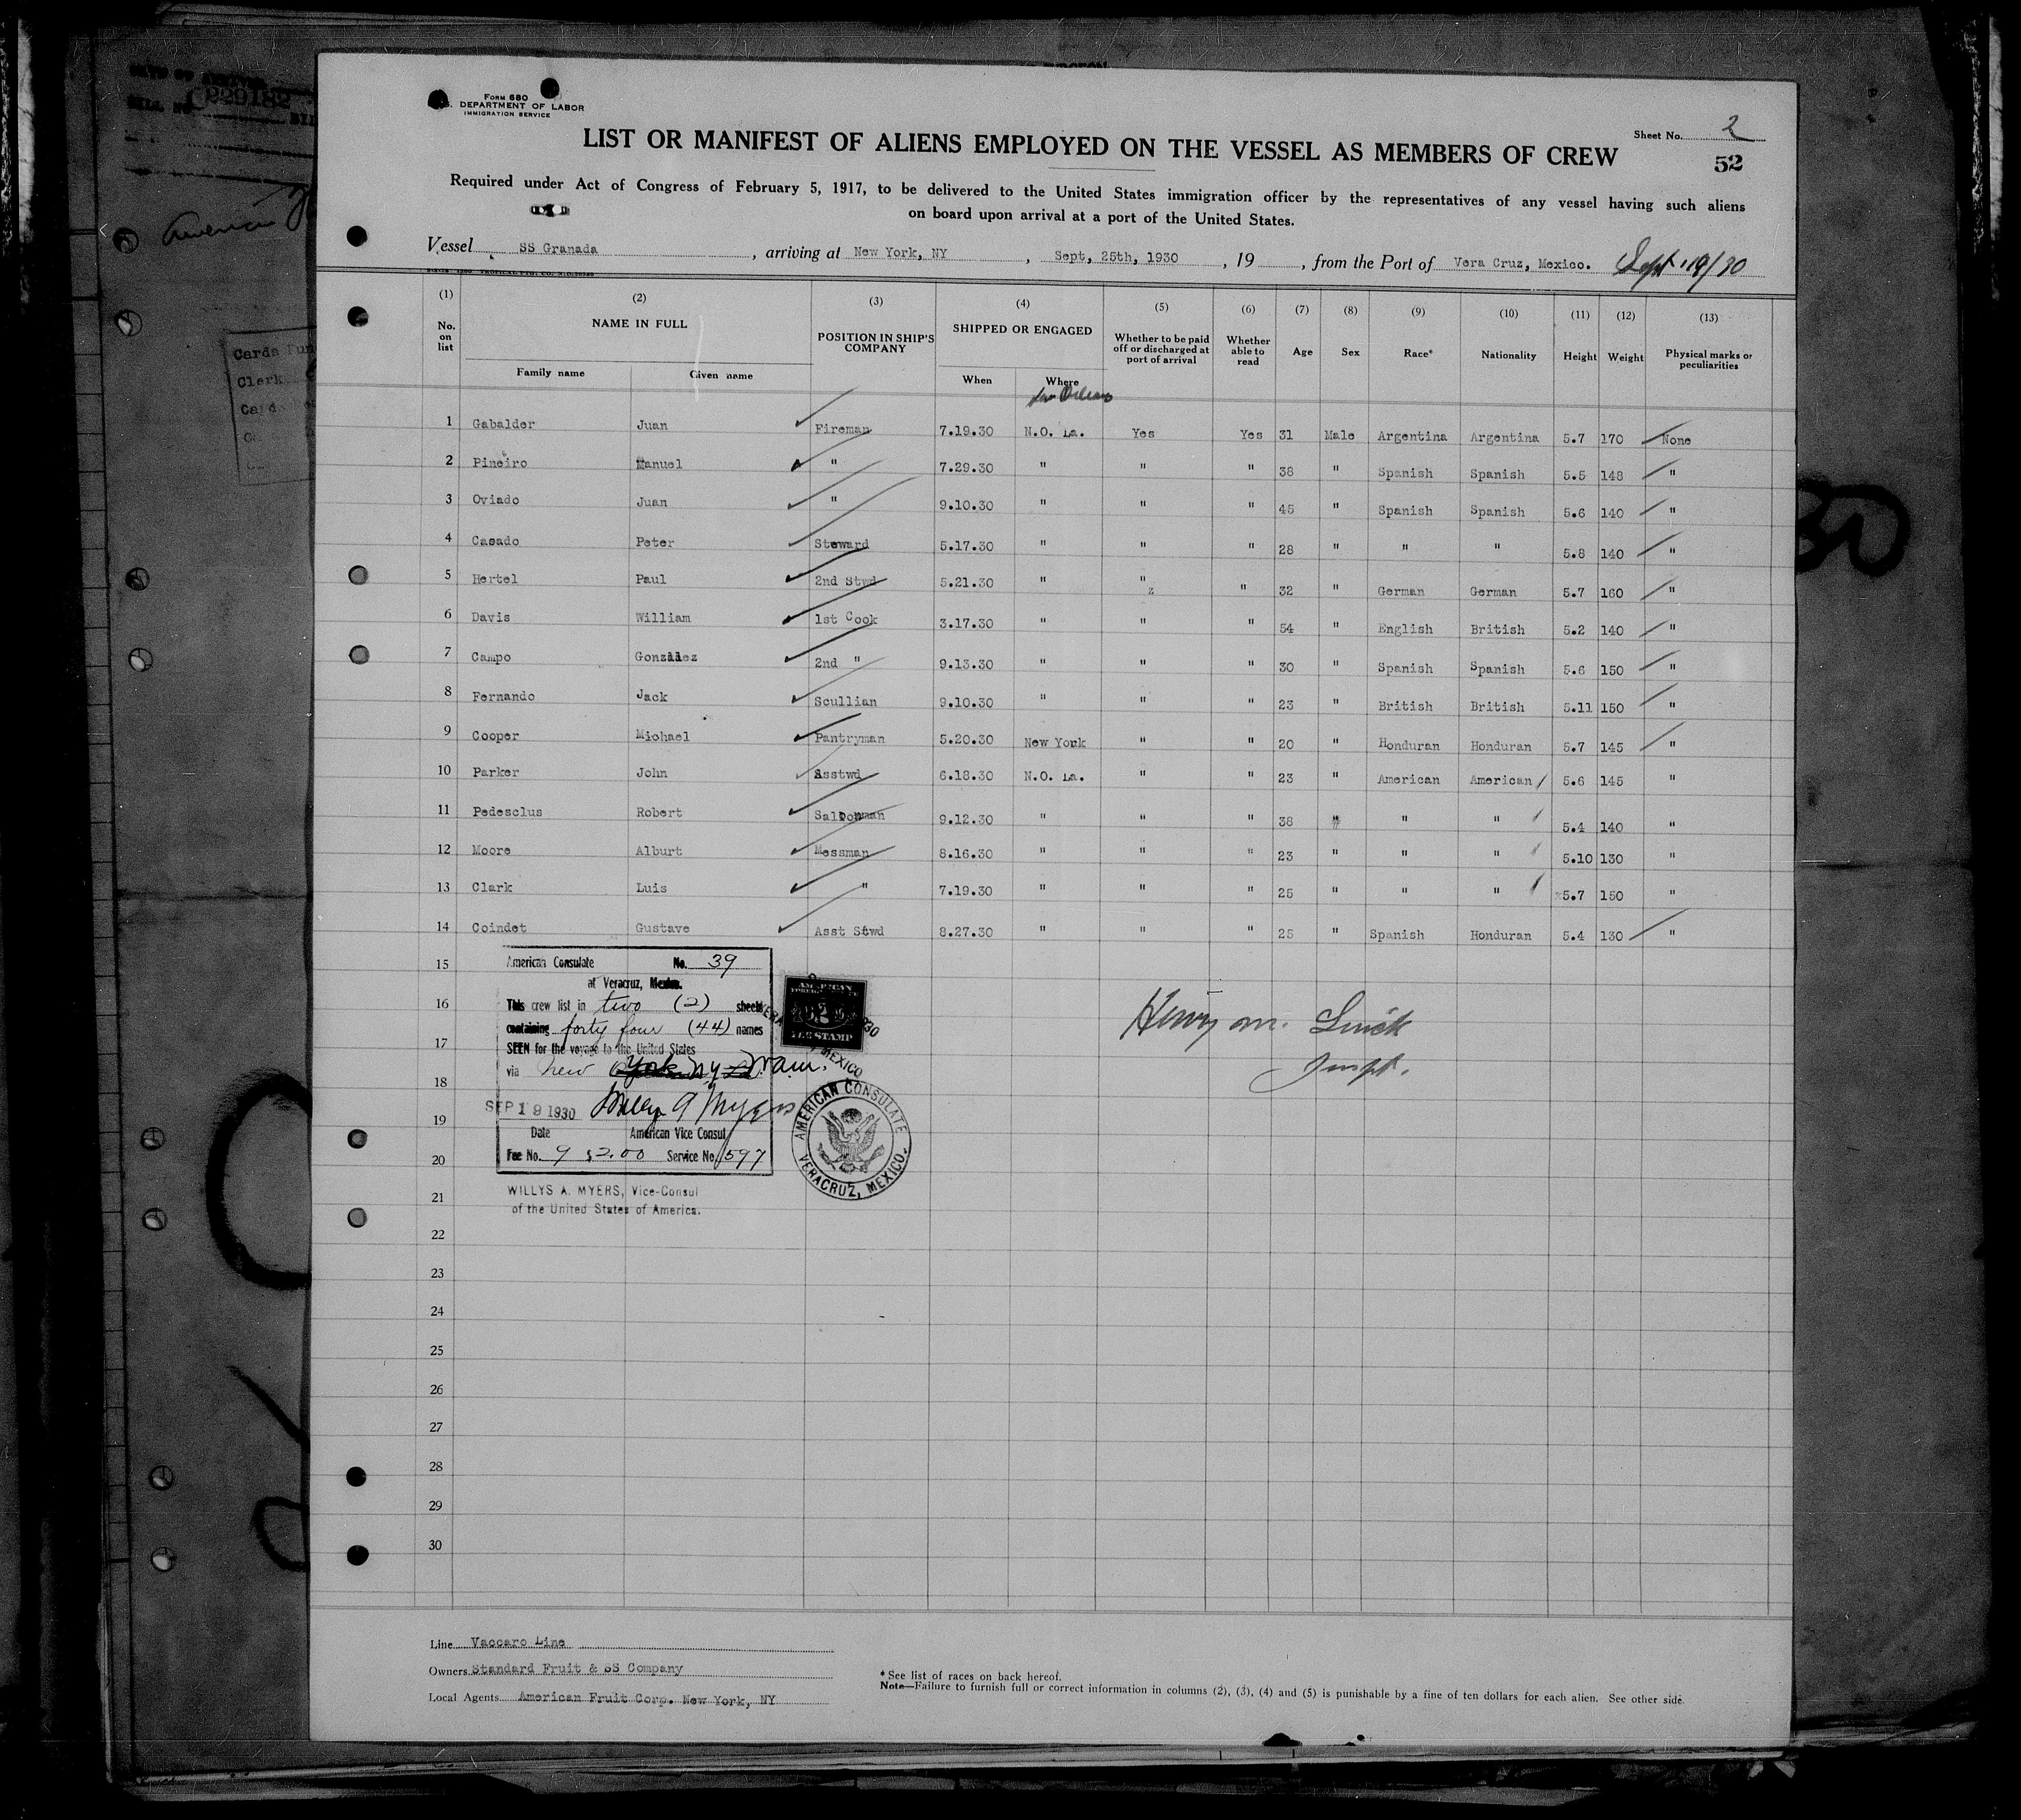 P29182
American
Form 680
DEPARTMENT OF LABOR
IMMIGRATION SERVICE
LIST OR MANIFEST OF ALIENS EMPLOYED ON THE VESSEL AS MEMBERS OF CREW
Sheet No. 2
52
Required under Act of Congress of February 5, 1917, to be delivered to the United States immigration officer by the representatives of any vessel having such aliens
on board upon arrival at a port of the United States.
Vessel SS Granada, arriving at New York, NY, Sept, 25th, 1930, 19, from the Port of Vera Cruz, Mexico. Sept 19/30
(1) (2) (3) (4) (5) (6) (7) (8) (9) (10) (11) (12) (13)
No. on list NAME IN FULL Family name Given name POSITION IN SHIP'S COMPANY SHIPPED OR ENGAGED When Where Whether to be paid off or discharged at port of arrival Whether able to read Age Sex Race* Nationality Height Weight Physical marks or peculiarities
1 Gabalder Juan Fireman 7.19.30 N.O. La. Yes Yes 31 Male Argentina Argentina 5.7 170 None
2 Pineiro Manuel " 7.29.30 " " " 38 " Spanish Spanish 5.5 148 "
3 Oviado Juan " 9.10.30 " " " 45 " Spanish Spanish 5.6 140 "
4 Casado Peter Steward 5.17.30 " " " 28 " " " 5.8 140 "
5 Hertel Paul 2nd Stwd 5.21.30 " " z " 32 " German German 5.7 160 "
6 Davis William 1st Cook 3.17.30 " " " 54 " English British 5.2 140 "
7 Campo Gonzalez 2nd " 9.13.30 " " " 30 " Spanish Spanish 5.6 150 "
8 Fernando Jack Scullian 9.10.30 " " " 23 " British British 5.11 150 "
9 Cooper Michael Pantryman 5.20.30 New York " " 20 " Honduran Honduran 5.7 145 "
10 Parker John Asstwd 6.18.30 N.O. La. " " 23 " American American 5.6 145 "
11 Pedesclus Robert Saloonman 9.12.30 " " " 38 " " " 5.4 140 "
12 Moore Alburt Messman 8.16.30 " " " 23 " " " 5.10 130 "
13 Clark Luis " 7.19.30 " " " 25 " " " 5.7 150 "
14 Coindet Gustave Asst Stwd 8.27.30 " " " 25 " Spanish Honduran 5.4 130 "
15
16
17
18
19
20
21
22
23
24
25
26
27
28
29
30
American Consulate No. 39
at Veracruz, Mexico.
This crew list in two (2) sheets
containing forty four (44) names
SEEN for the voyage to the United States
via New York NY
SEP 19 1930 Willys A Myers
Date American Vice Consul
Fee No. 9 $2.00 Service No. 597
WILLYS A. MYERS, Vice-Consul
of the United States of America.
AMERICAN
FEE STAMP
MEXICO
AMERICAN CONSULATE
VERACRUZ, MEXICO.
Henry M.
Inspt.
Line Vaccaro Line
Owners Standard Fruit & SS Company
Local Agents American Fruit Corp. New York, NY
* See list of races on back hereof.
Note—Failure to furnish full or correct information in columns (2), (3), (4) and (5) is punishable by a fine of ten dollars for each alien. See other side